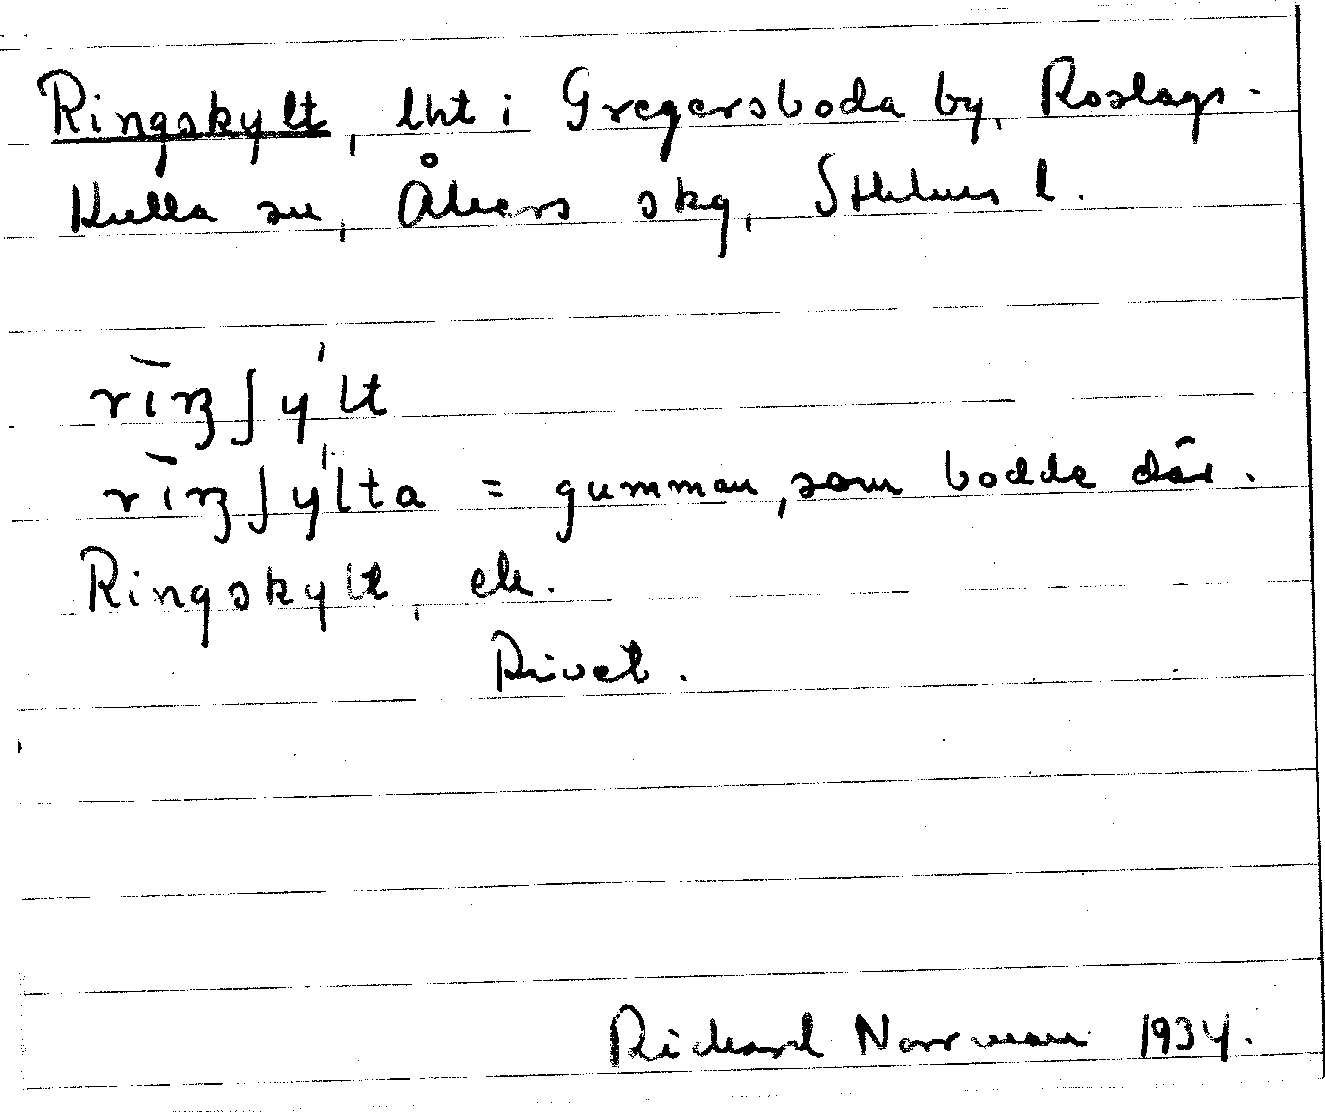 Ringskylt, lht i Gregersboda by, Roslags-
Kulla sn, Åkers skg, Sthlms l.
rīŋʃy'lt
rīŋʃy'lta = gumman, som bodde där.
Ringskylt, ek.
Rivet.
Rickard Norrman 1934.